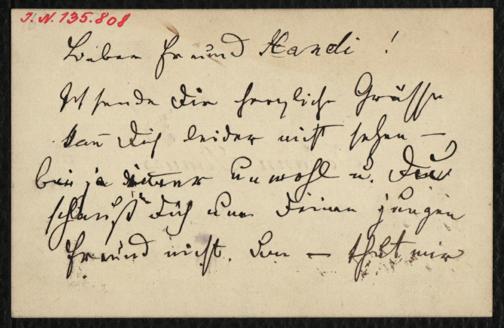 I.N. 135.808
Lieber Freund Handi !
Ich sende Dir herzliche Grüsse
kan̄ Dich leider nicht sehen –
bin ja immer unwohl u. Du
schaust Dich um Deinen jungen
Freund nicht. – thut mir